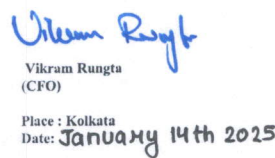 Vikram Rungta
Vikram Rungta
(CFO)
Place : Kolkata
Date: January 14th 2025